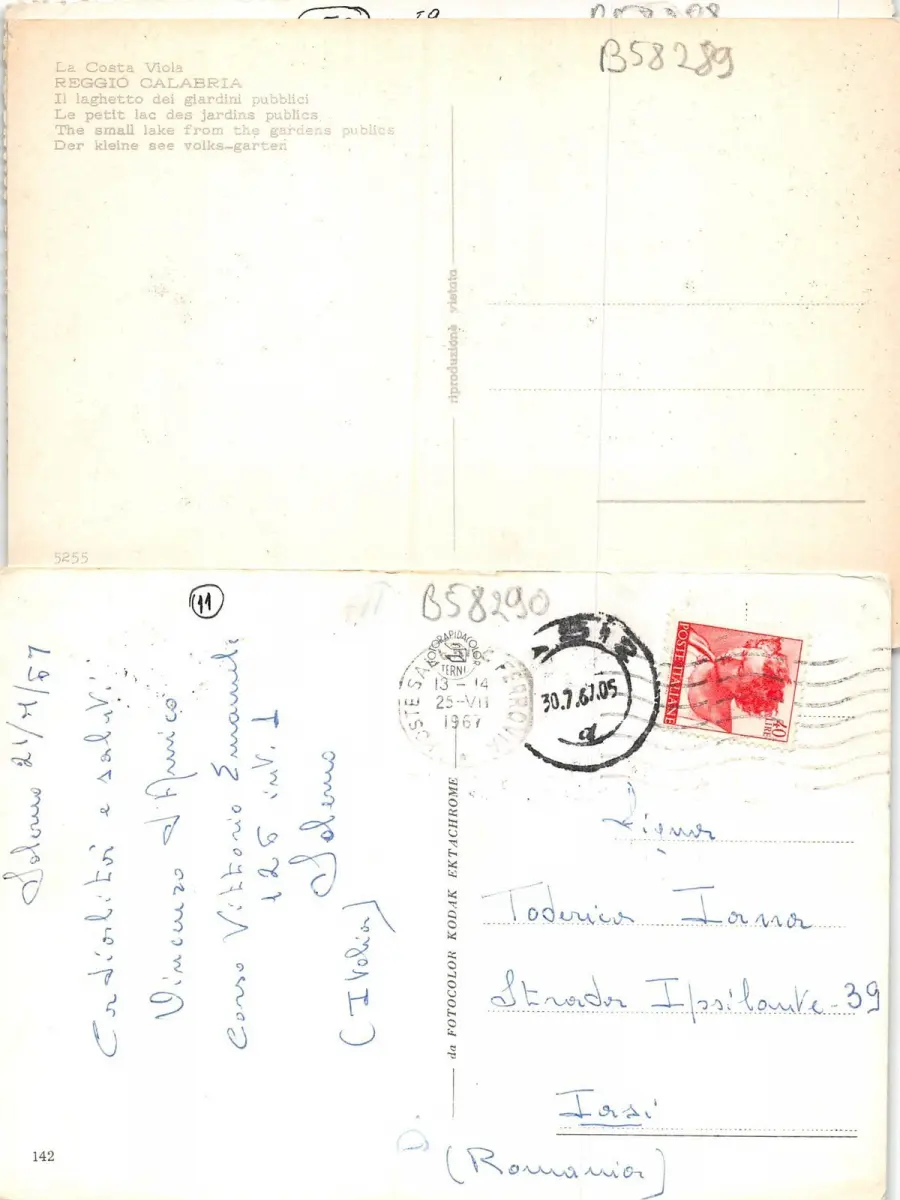 B58289
La Costa Viola
REGGIO CALABRIA
Il laghetto dei giardini pubblici
Le petit lac des jardins publics
The small lake from the gardens publics
Der kleine see volks-garten
riproduzione vietata
5255
11
B58290
FOTORAPIDACOLOR
TERNI
POSTE FERROVIA
13-14
25-VII
1967
30.7.67.05
d
POSTE ITALIANE
LIRE
40
Salerno 21/7/67
Cordialità e saluti
Vincenzo d'Amico
Corso Vittorio Emanuele
126 inv. 1
Salerno
(Italia)
da FOTOCOLOR KODAK EKTACHROME
Signa
Toderica Iana
Strada Ipsilante-39
Iasi
(Romania)
142